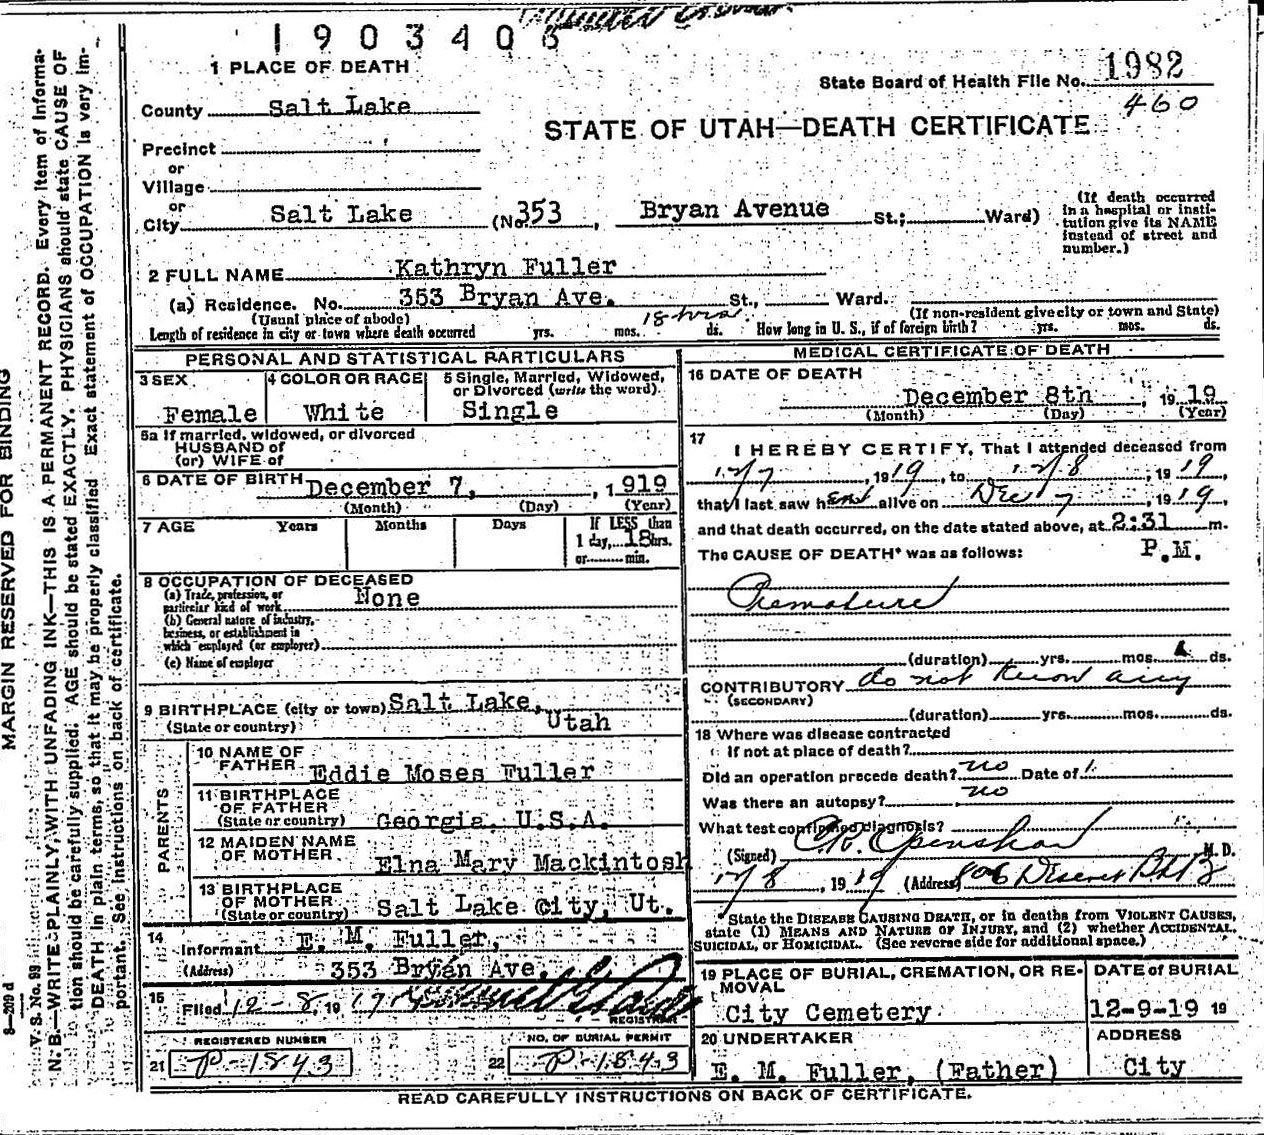 1903406
1 PLACE OF DEATH
State Board of Health File No. 1982
460
County Salt Lake
STATE OF UTAH—DEATH CERTIFICATE
Precinct
or
Village
or
City Salt Lake (No. 353, Bryan Avenue St.; Ward)
(If death occurred in a hospital or insti-
tution give its NAME
instead of street and
number.)
2 FULL NAME Kathryn Fuller
(a) Residence. No. 353 Bryan Ave. St., Ward.
(Usual place of abode) (If non-resident give city or town and State)
Length of residence in city or town where death occurred yrs. mos. 18 hrs. ds. How long in U. S., if of foreign birth? yrs. mos. ds.
PERSONAL AND STATISTICAL PARTICULARS
3 SEX Female
4 COLOR OR RACE White
5 Single, Married, Widowed,
or Divorced (write the word).
Single
5a If married, widowed, or divorced
HUSBAND of
(or) WIFE of
6 DATE OF BIRTH December 7, , 1919
(Month) (Day) (Year)
7 AGE Years Months Days If LESS than
1 day, 18 hrs.
or min.
8 OCCUPATION OF DECEASED
(a) Trade, profession, or
particular kind of work None
(b) General nature of industry,
business, or establishment in
which employed (or employer)
(c) Name of employer
9 BIRTHPLACE (city or town) Salt Lake,
(State or country) Utah
PARENTS
10 NAME OF
FATHER Eddie Moses Fuller
11 BIRTHPLACE
OF FATHER
(State or country) Georgia, U.S.A.
12 MAIDEN NAME
OF MOTHER Elna Mary Mackintosh
13 BIRTHPLACE
OF MOTHER
(State or country) Salt Lake City, Ut.
14 Informant E. M. Fuller,
(Address) 353 Bryan Ave.
15 Filed 12-8, 19
REGISTRAR
REGISTERED NUMBER
21 P-1843
NO. OF BURIAL PERMIT
22 P-1843
MEDICAL CERTIFICATE OF DEATH
16 DATE OF DEATH
December 8th , 1919
(Month) (Day) (Year)
17 I HEREBY CERTIFY, That I attended deceased from
12/7, 1919, to 12/8, 1919,
that I last saw her alive on Dec 7, 1919,
and that death occurred, on the date stated above, at 2:31 m.
P.M.
The CAUSE OF DEATH* was as follows:
Premature
(duration) yrs. mos. ds.
CONTRIBUTORY do not know any
(SECONDARY)
(duration) yrs. mos. ds.
18 Where was disease contracted
If not at place of death?
Did an operation precede death? no Date of
Was there an autopsy? no
What test confirmed diagnosis?
(Signed) Openshaw M. D.
12/8, 1919 (Address) 806 Deseret
*State the DISEASE CAUSING DEATH, or in deaths from VIOLENT CAUSES,
state (1) MEANS AND NATURE OF INJURY, and (2) whether ACCIDENTAL,
SUICIDAL, or HOMICIDAL. (See reverse side for additional space.)
19 PLACE OF BURIAL, CREMATION, OR RE-
MOVAL
City Cemetery
DATE of BURIAL
12-9-19 19
20 UNDERTAKER
E. M. Fuller, (Father)
ADDRESS
City
READ CAREFULLY INSTRUCTIONS ON BACK OF CERTIFICATE.
MARGIN RESERVED FOR BINDING
V. S. No. 99
N. B.—WRITE PLAINLY, WITH UNFADING INK—THIS IS A PERMANENT RECORD. Every item of Informa-
tion should be carefully supplied. AGE should be stated EXACTLY. PHYSICIANS should state CAUSE OF
DEATH in plain terms, so that it may be properly classified. Exact statement of OCCUPATION is very im-
portant. See instructions on back of certificate.